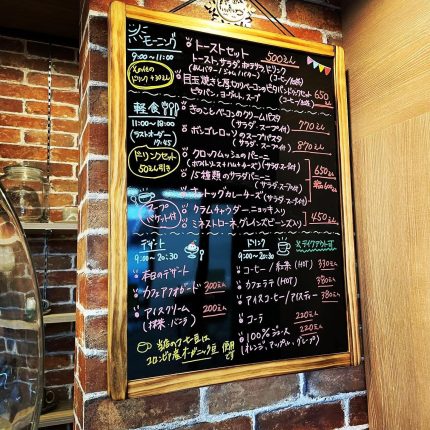 モーニング
9:00〜11:00
トーストセット 500えん
トースト、サラダ、ポテサラ、ドリンク
(コーヒー/紅茶)
目玉焼きと厚切りベーコンのピタパンドックセット 650えん
ピタパン、ヨーグルト、スープ
(コーヒー/紅茶)
軽食
11:00〜18:00
ラストオーダー
17:45
ドリンクセット
50えん引き
きのことベーコンのクリームパスタ
(サラダ、スープ付) 770えん
ボンゴレロッソのスープパスタ
(サラダ、スープ付) 870えん
クロックムッシュのパニーニ
(サラダ、スープ付)
15種類のサラダパニーニ 650えん
(サラダ、スープ付)
ホットドッグカレーチーズ(サラダ、スープ付)
スープ
バゲット付
クラムチャウダー、ニョッキ入り
ミネストローネ、グレインズビーンズ入り 450えん
デザート
9:00〜20:30
本日のデザート
カフェアフォガード 300えん
アイスクリーム 200えん
(抹茶、バニラ)
ドリンク
9:00〜20:30
※テイクアウト可
コーヒー/紅茶(HOT) 330えん
カフェラテ(HOT) 380えん
アイスコーヒー/アイスティー 380えん
コーラ 220えん
100%ジュース 220えん
(オレンジ、アップル、グレープ)
コロンビア産オーガニック豆使用
です